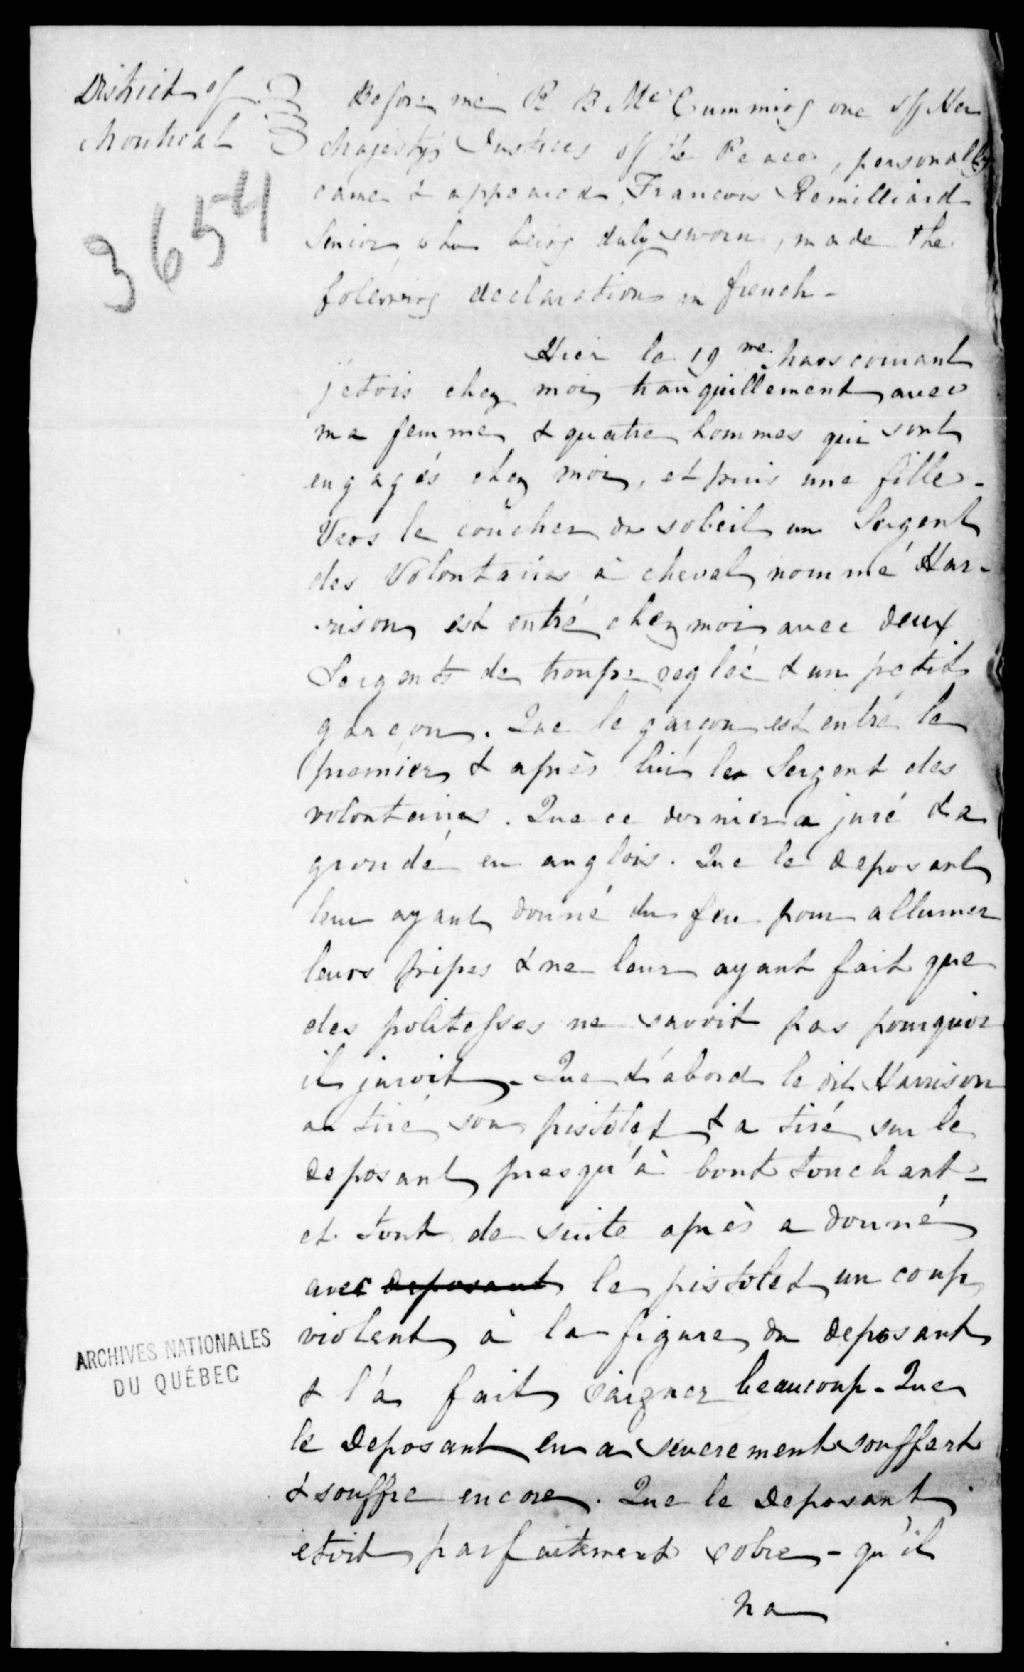 District of
Montreal
3654
Before me R B McCumming one of Her
Majesty's Justices of the Peace, personally
came & appeared Francois Remilliard
Senior, who being duly sworn, made the
following declaration in french -
Hier le 19me. Mars courant
j'etois chez moi tranquillement avec
ma femme & quatre hommes qui sont
engagés chez moi, et puis une fille -
Vers le coucher du soleil un Sergent
des Volontaires à cheval nommé Har-
-rison est entré chez moi avec deux
Sergents de troupe reglée & un petit
garçon. Que le garçon est entré le
premier & après lui le Sergent des
volontaires. Que ce dernier a juré & a
grondé en anglois. Que le deposant
leur ayant donné du feu pour allumer
leurs pipes & ne leur ayant fait que
des politesses ne savoit pas pourquoi
il juroit - Que d'abord le dit Harrison
a tiré son pistolet & a tiré sur le
deposant presqu'à bout touchant -
et tout de suite après a donné
avec deposant le pistolet un coup
violent à la figure du deposant
& l'a fait saigner beaucoup - Que
le Deposant en a severement souffert
& souffre encore. Que le Deposant
etoit parfaitement sobre - qu'il
na
ARCHIVES NATIONALES
DU QUÉBEC